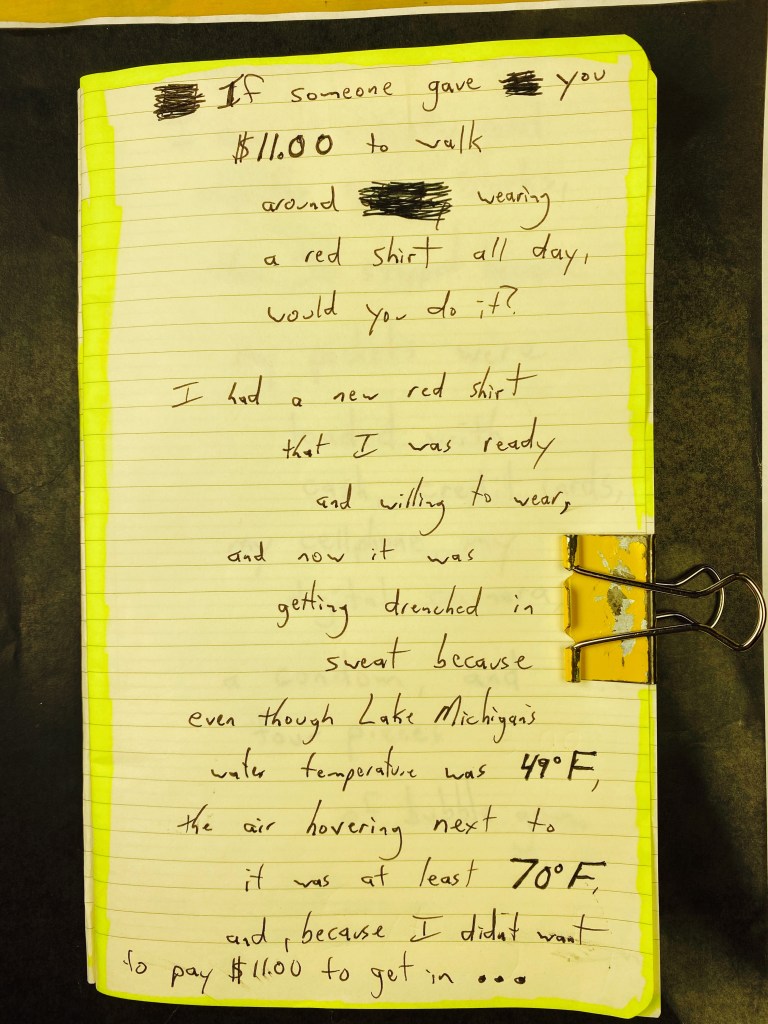 If someone gave you
$11.00 to walk
around wearing
a red shirt all day,
would you do it?
I had a new red shirt
that I was ready
and willing to wear,
and now it was
getting drenched in
sweat because
even though Lake Michigan's
water temperature was 49°F,
the air hovering next to
it was at least 70°F,
and, because I didn't want
to pay $11.00 to get in ...